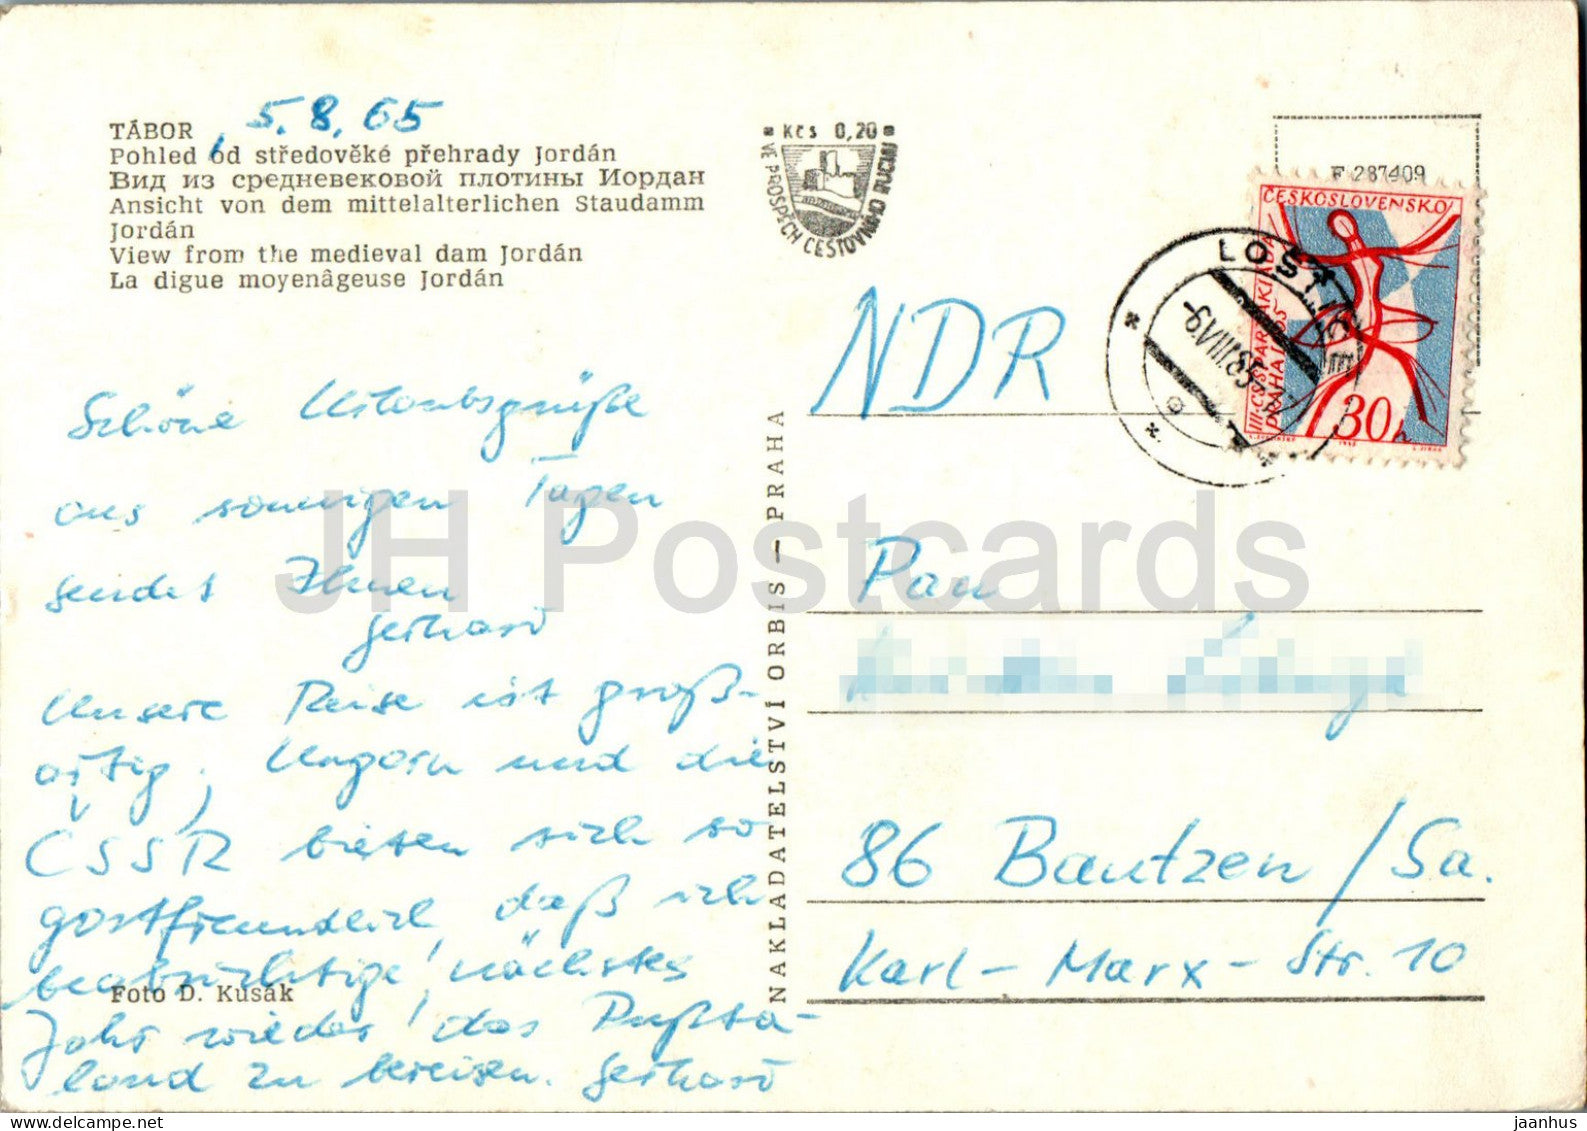 TÁBOR, 5.8.65
Pohled od středověké přehrady Jordán
Вид из средневековой плотины Иордан
Ansicht von dem mittelalterlichen Staudamm
Jordán
View from the medieval dam Jordán
La digue moyenâgeuse Jordán
Schöne Urlaubsgrüße
aus sonnigen Tagen
sendet Ihnen
Gerhard
Unsere Reise ist groß-
artig, Ungarn und die
ČSSR bieten sich so
gastfreundlich, daß ich
beabsichtige, nächstes
Jahr wieder das Pußta-
land zu bereisen. Gerhard
Foto D. Kusák
NAKLADATELSTVÍ ORBIS — PRAHA
Kčs 0,20
VE PROSPĚCH CESTOVNÍHO RUCHU
F 287409
ČESKOSLOVENSKO
III. CS SPARTAKIÁDA
PRAHA 1965
30h
LOŠTICE
-6.VIII.65
NDR
Pan
86 Bautzen/Sa.
Karl-Marx-Str. 10
JH Postcards
jaanhus
www.delcampe.net